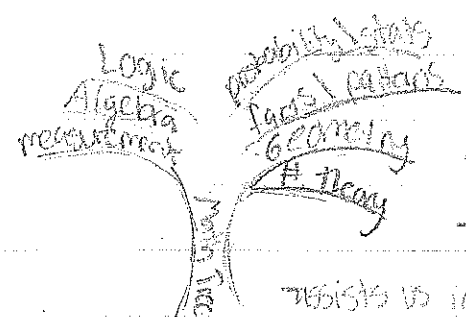 Logic
Algebra
measurement
probability/stats
facts/patterns
Geometry
# Theory
Math Tree
assists us i